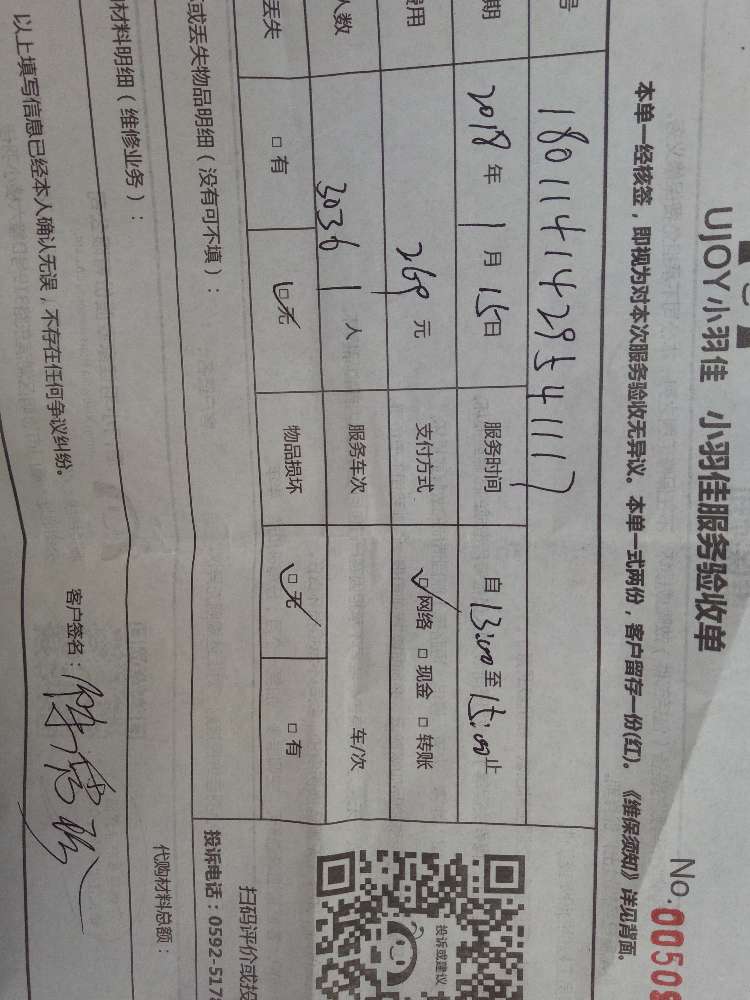 UJOY小羽佳 小羽佳服务验收单
No. 00508
本单一经核签，即视为对本次服务验收无异议。本单一式两份，客户留存一份(红)。《维保须知》详见背面。
号 180114142954 1117
期 2018 年 1 月 15 日 服务时间 自 13:00 至 15:00 止
费用 269 元 支付方式 □ 网络 □ 现金 □ 转账
人数 3036 1 人 服务车次 车/次
丢失 □ 有 □ 无 物品损坏 □ 无 □ 有
或丢失物品明细（没有可不填）：
投诉或建议
扫码评价或投
投诉电话：0592-5178
材料明细（维修业务）：
代购材料总额：
以上填写信息已经本人确认无误，不存在任何争议纠纷。
客户签名：